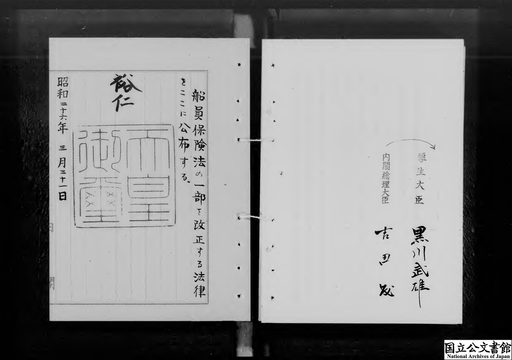 船員保険法の一部を改正する法律
をここに公布する。
裕仁
天皇
御璽
昭和二十六年三月三十一日
厚生大臣
黒川武雄
内閣総理大臣
吉田茂
国立公文書館
National Archives of Japan